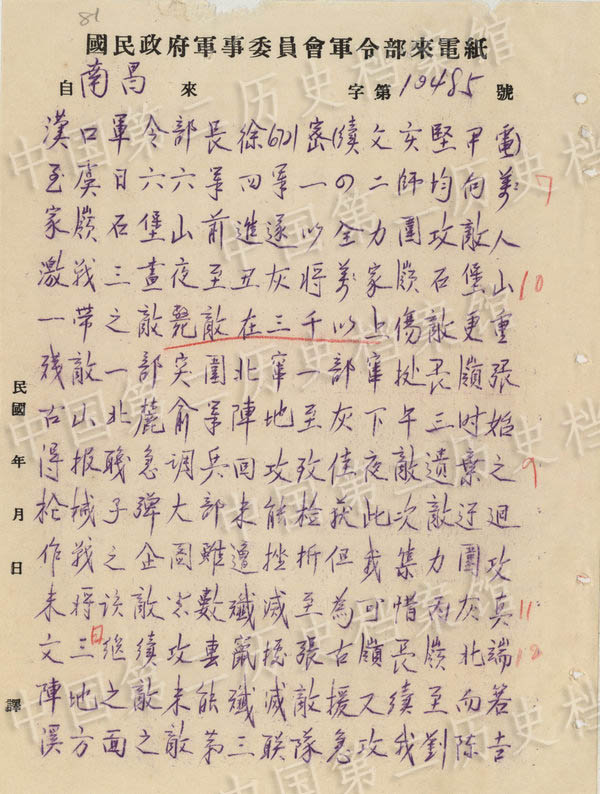 81
國民政府軍事委員會軍令部來電紙
自南昌來 字第10485號
漢口軍令部長徐671密(續文亥堅甲電)
至虞日六六軍四軍一の二師均向萬
家嶺石堡山前進遂以全力圍攻敵人
激戰三晝夜至丑灰將萬家嶺石堡山
一帶之敵斃敵在三千以上傷敵更重
殘敵一部突圍北竄一部竄長嶺張
古山北麓俞軍陣地至灰下午三時始
得報職急調兵回攻致佳夜敵遺棄之
枪械子彈大部未能检获此次敵迂迴
作戰之企圖雖遭挫折但我集力圍攻
未將該敵悉數殲滅至為可惜丙灰真
文三日繼續攻張古嶺長嶺北端
陣地之敵未能殲滅敵援又續至向若
溪方面之敵第三聯隊急攻我劉陳吉
7
10
9
11
12
民國 年 月 日 譯
中国第二历史档案馆